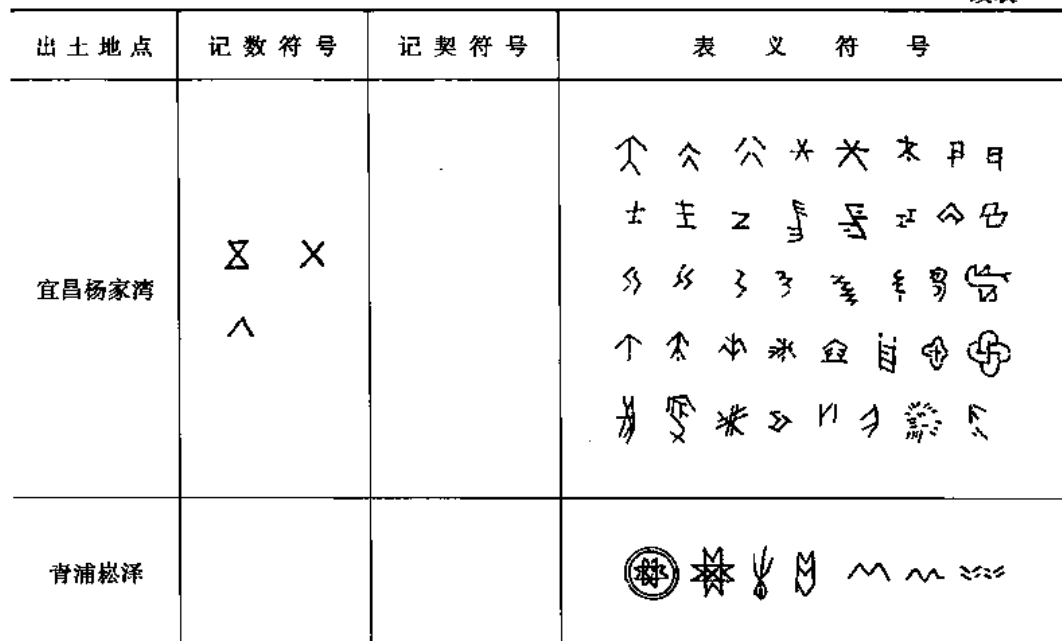 出土地点 记数符号 记契符号 表义符号
宜昌杨家湾
青浦崧泽